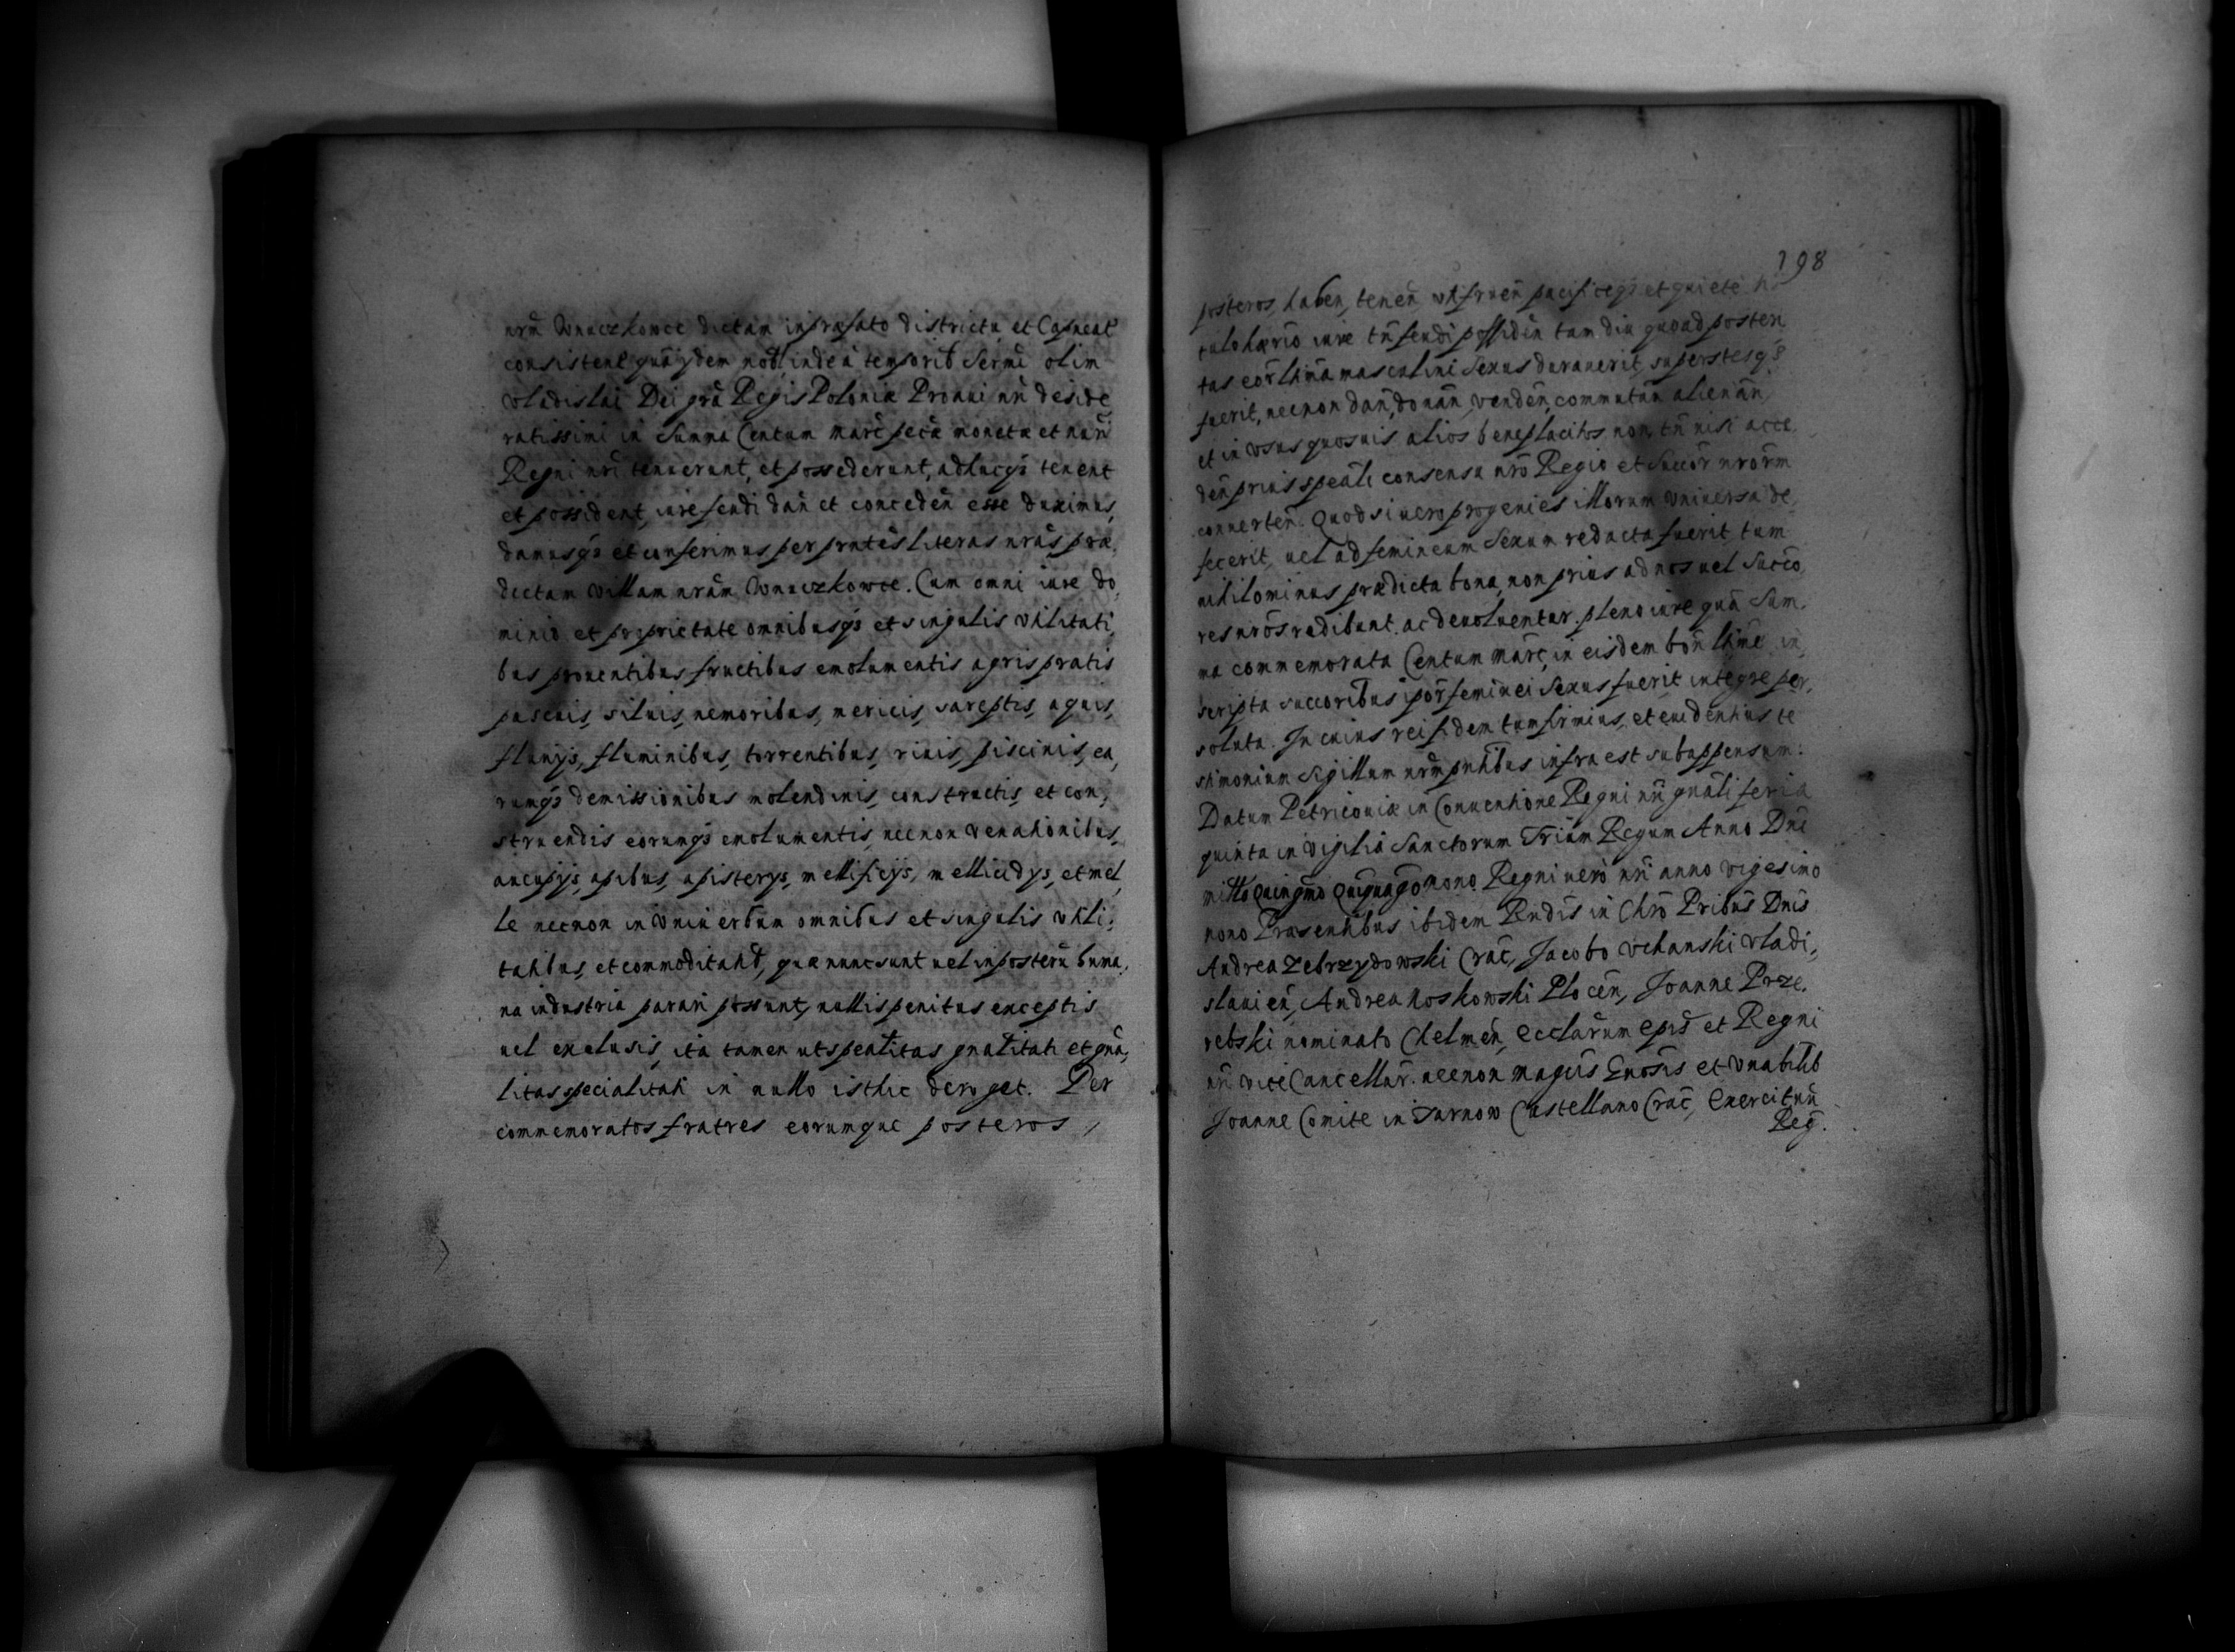 nrm̃ Wnuczkowce dictam in præfato districtu et Capneat̃
consisten̄ quā ydem nob̃ inde à temporib̃ Serm̃i olim
Vladislai Dei grã Regis Poloniæ Proaui nr̃i deside
ratissimi in Summa Centum marc̃ pecũ monetæ et num̃
Regni nr̃i tenuerunt, et possederunt, adhucq₃ tenent
et possident, iure feudi dan̄ et conceden̄ esse duximus,
damusq₃ et conferimus per prñtes literas nrãs præ,
dictam Villam nrãm Wnuczkowce. Cum omni iure do,
minio et proprietate omnibusq₃ et singulis Vtilitati,
bus prouentibus fructibus emolumentis agris pratis
pascuis, siluis, nemoribus, mericis, sareptis, aquis,
fluuijs, fluminibus, torrentibus, riuis, piscinis, ea,
rumq₃ demissionibus molendinis, constructis, et con,
struendis eorumq₃ emolumentis, necnon Venationibus,
aucupijs, apibus, apisterijs, mellificijs, mellicidijs, et mel,
le necnon in Vniuersum omnibus et singulis Vtili,
tatibus, et commoditatib̃, quæ nunc sunt uel in posterũ huma,
na industria parari possunt, nullis penitus exceptis
uel exclusis, ita tamen ut spealitas gnalitati et gnã,
litas specialitati in nullo isthic deroget. Per
commemoratos fratres eorumque posteros,
198
posteros, haben, tenen̄ Vtifruen̄ pacificeq₃ et quiete
tulo hærio iure tñ feudi possiden̄ tam diu quoad posteri
tas eor̃ ltm̃a masculini Sexus durauerit, superstesq₃
fuerit, necnon dan̄, donan̄, Venden̄, commutan̄ alienan̄,
et in Vsus quosuis alios beneplacitos non tñ nisi acce,
den̄ prius speãli consensu nrõ Regio et Succor̃ nrõrm
conuerten̄. Quod si uero progenies illorum Vniuersa de,
fecerit, uel ad femineum Sexum redacta fuerit tum
nihilominus prædicta bona, non prius ad nos uel Succo,
res nrõs redibunt. ac deuoluentur. pleno iure quã Sum,
ma commemorata Centum marc̃, in eisdem bon̄ ltm̃e in,
scripta succoribus ipõr̃ feminei Sexus fuerit integre per,
soluta. In cuius rei fidem tum firmius, et euidentius te
stimonium Sigillum nrm̃ pntĩbus infra est subappensum.
Datum Petricouiæ in Conuentione Regni nr̃i gnãli feria
quinta in Vigilia Sanctorum Trium Regum Anno Dnĩ
millõ Quingm̃o Quinquagõ nono. Regni uero nr̃i anno Vigesimo
nono Præsentibus ibidem Rndis in Chrõ Pribũs Dnis
Andrea Zebrzydowski Crac̃, Jacobo Vchanski Vladi,
slauien̄, Andrea Noskowski Plocen̄, Joanne Prze,
rebski nominato Chelmen̄, Ecclarũm Epis̃ et Regni
nr̃i ViceCancellar̃. necnon Magcĩs Gnosis et Vnabilib̃
Joanne Comite in Tarnow Castellano Crac̃, Exercituũ
Reg̃.